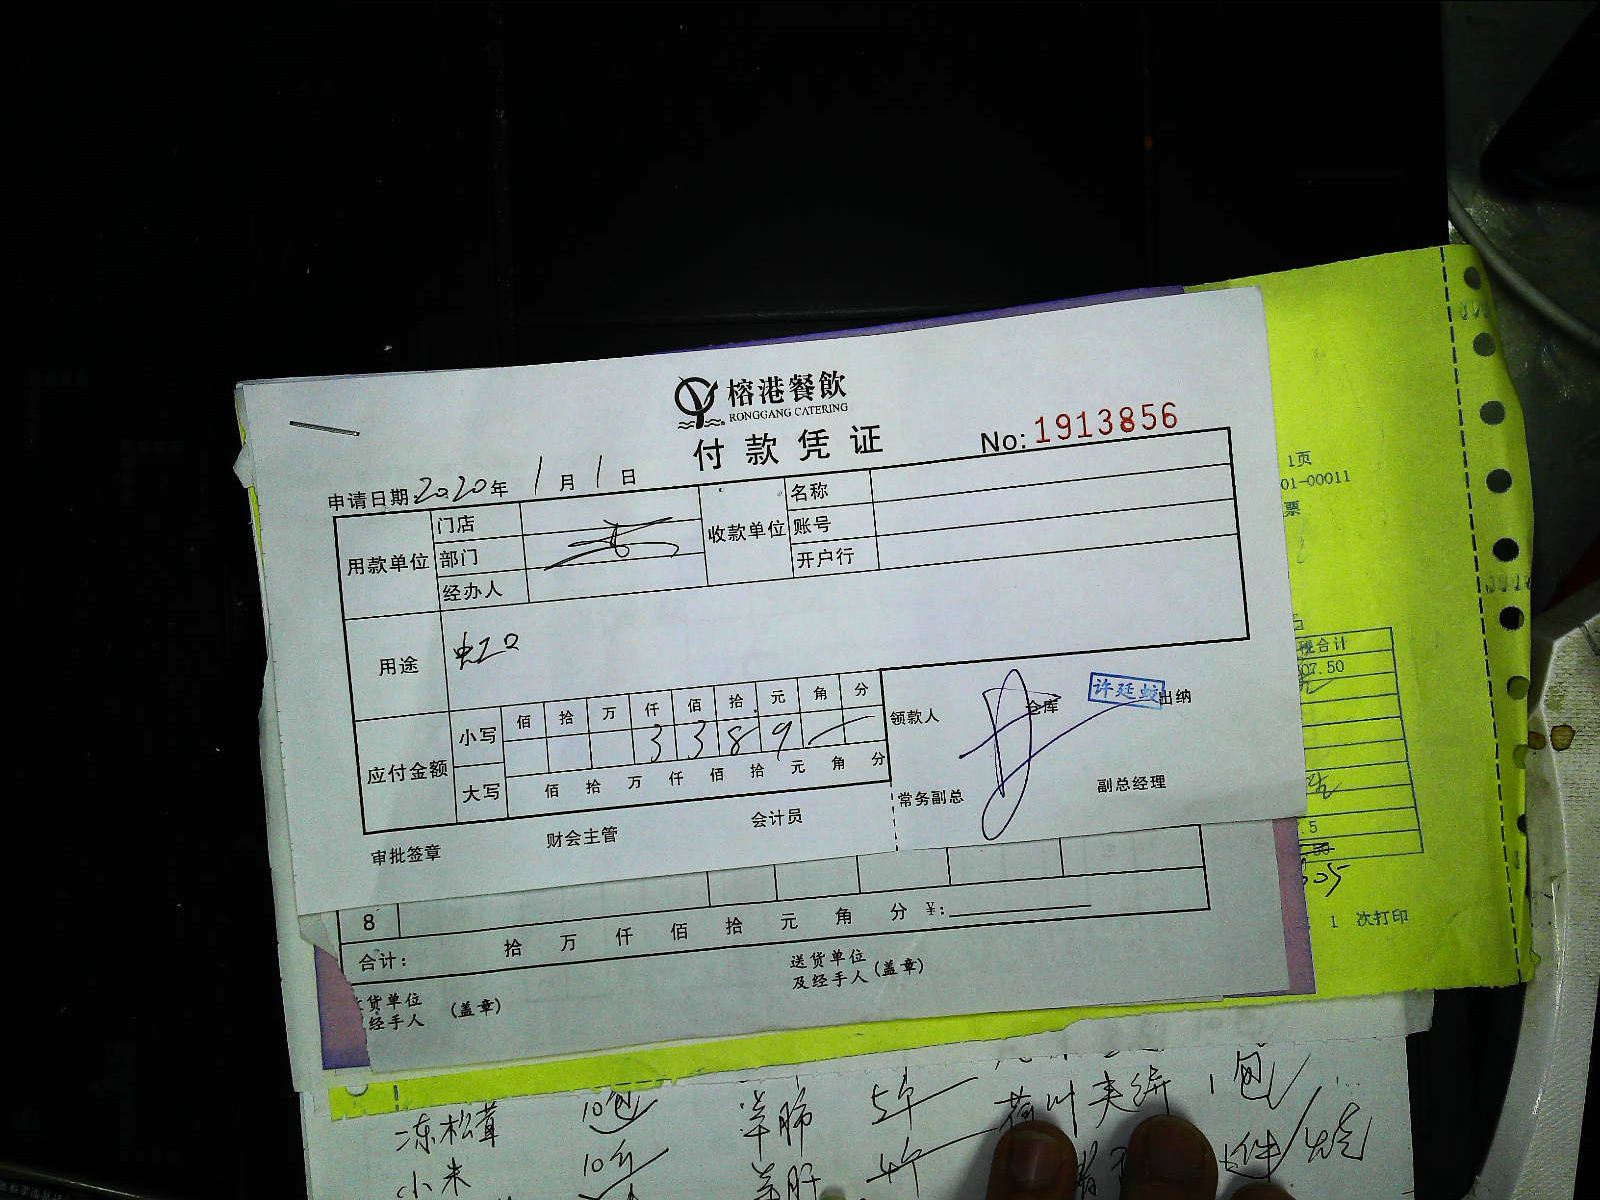 榕港餐飲
RONGGANG CATERING
付款凭证
No: 1913856
申请日期 2020年 1月 1日
用款单位 门店 收款单位 名称
部门 账号
经办人 开户行
用途 虹口
应付金额 小写 佰 拾 万 仟 佰 拾 元 角 分
3 3 8 9 —
大写 佰 拾 万 仟 佰 拾 元 角 分
领款人 仓库 许廷蛟 出纳
常务副总 副总经理
审批签章 财会主管 会计员
8
合计: 拾 万 仟 佰 拾 元 角 分 ¥:
货单位
经手人 (盖章)
送货单位
及经手人 (盖章)
1页
01-00011
票
税合计
07.50
.5
1 次打印
冻松茸 10包 羊肺 5斤 荷叶夹饼 1包
小米 10斤 羊肝